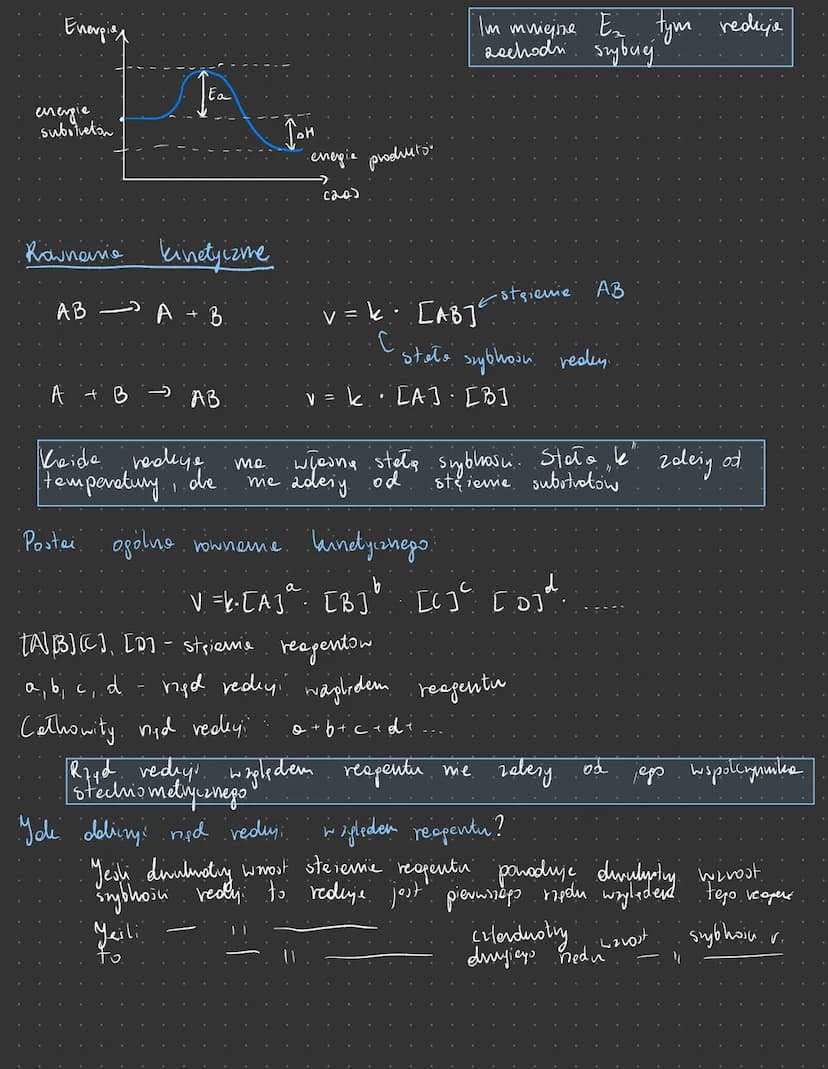 Energia
Im mniejsze Ea tym reakcja
zachodzi szybciej
Ea
energia
substratów
ΔH
energia produktó
czas
Równanie kinetyczne
AB → A + B
v = k · [AB]
stężenie AB
stała szybkości reakcji
A + B → AB
v = k · [A] · [B]
Każda reakcja ma własną stałą szybkości. Stała „k" zależy od
temperatury, ale nie zależy od stężenia substratów
Postać ogólna równania kinetycznego:
V = k·[A]ᵃ · [B]ᵇ · [C]ᶜ [D]ᵈ · .....
[A][B][C], [D] - stężenia reagentów
a, b, c, d - rząd reakcji względem reagentu
Całkowity rząd reakcji : a + b + c + d + ...
Rząd reakcji względem reagentu nie zależy od jego współczynnika
stechiometrycznego
Jak obliczyć rząd reakcji względem reagentu?
Jeśli dwukrotny wzrost stężenia reagentu powoduje dwukrotny wzrost
szybkości reakcji to reakcja jest pierwszego rzędu względem tego
Jeśli — 11 — czterokrotny wzrost szybkości r.
to — 11 — drugiego rzędu — 11 —